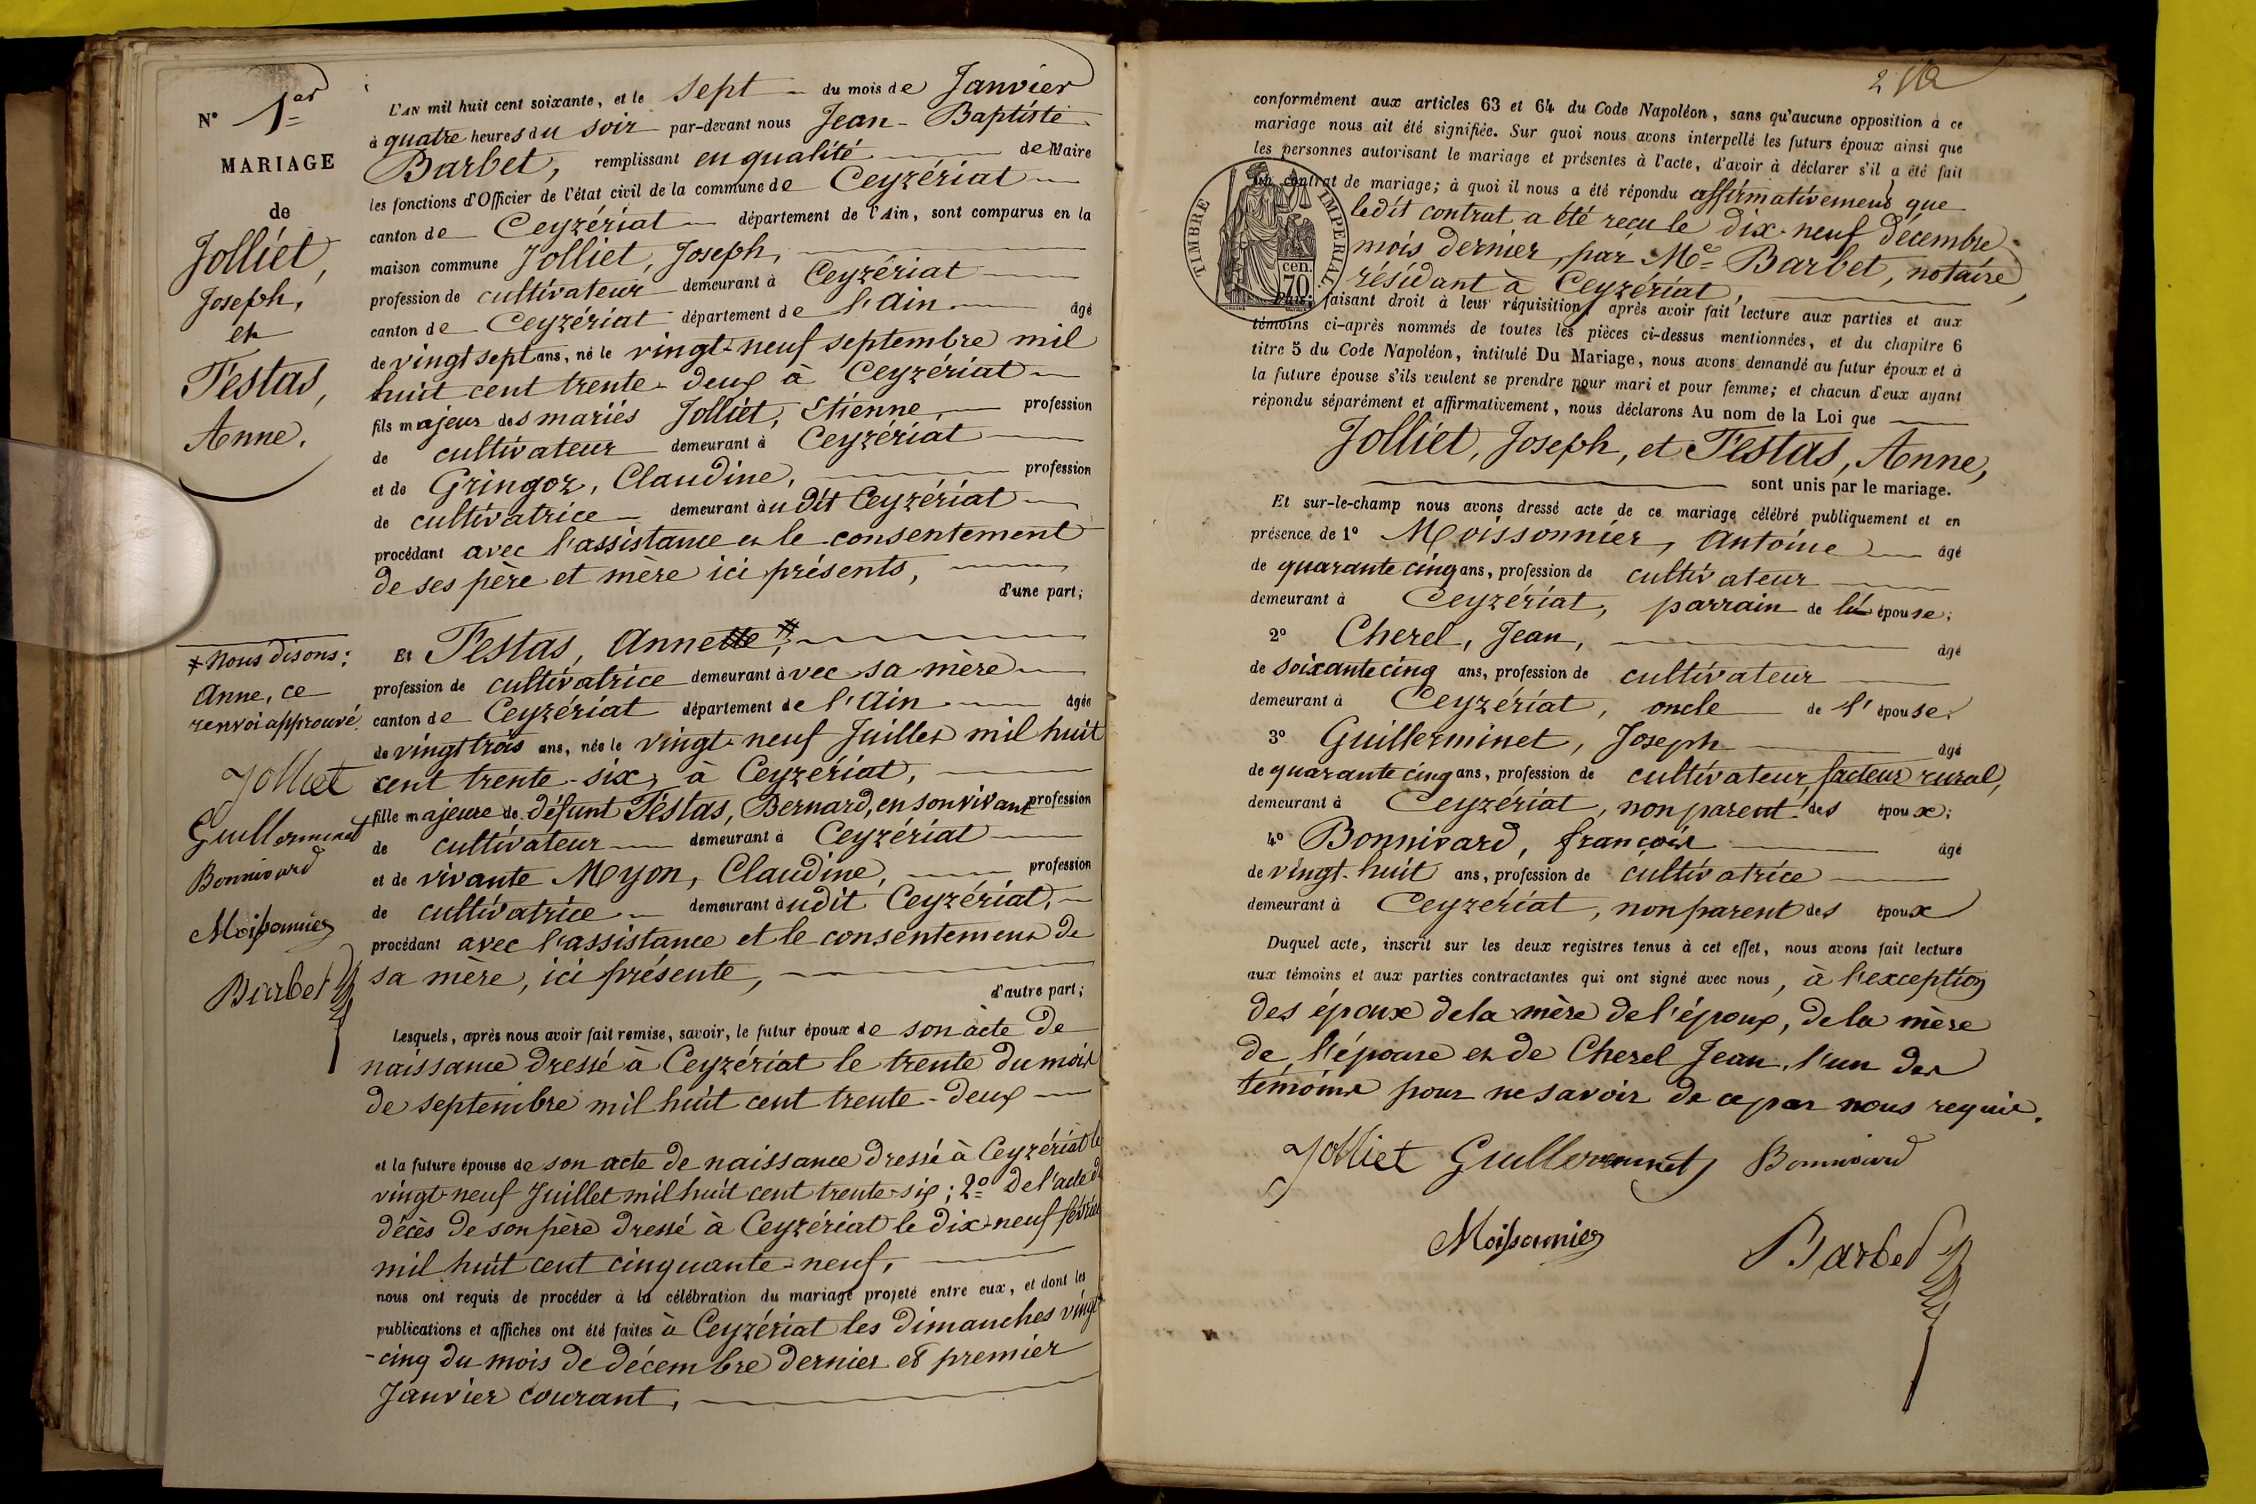 N° 1er
MARIAGE
de
Jolliet,
Joseph,
et
Festas,
Anne.
* Nous disons:
Anne, ce
renvoi approuvé.
Jolliet
Guillerminet
Bonnivard
Moissonnier
Barbet
L'AN mil huit cent soixante, et le sept du mois de Janvier
à quatre heures du soir par-devant nous Jean-Baptiste
Barbet, remplissant en qualité de Maire
les fonctions d'Officier de l'état civil de la commune de Ceyzériat
canton de Ceyzériat département de l'Ain, sont comparus en la
maison commune Jolliet, Joseph,
profession de cultivateur demeurant à Ceyzériat
canton de Ceyzériat département de l'Ain âgé
de vingt sept ans, né le vingt-neuf septembre mil
huit cent trente-deux à Ceyzériat
fils majeur des mariés Jolliet, Etienne, profession
de cultivateur demeurant à Ceyzériat
et de Gringoz, Claudine, profession
de cultivatrice demeurant audit Ceyzériat
procédant avec l'assistance et le consentement
de ses père et mère ici présents,
d'une part;
Et Festas, Annette #,
profession de cultivatrice demeurant avec sa mère
canton de Ceyzériat département de l'Ain âgée
de vingt trois ans, née le vingt-neuf Juillet mil huit
cent trente-six, à Ceyzériat,
fille majeure de défunt Festas, Bernard, en son vivant profession
de cultivateur demeurant à Ceyzériat
et de vivante Myon, Claudine, profession
de cultivatrice demeurant audit Ceyzériat,
procédant avec l'assistance et le consentement de
sa mère, ici présente,
d'autre part;
Lesquels, après nous avoir fait remise, savoir, le futur époux de son acte de
naissance dressé à Ceyzériat le trente du mois
de septembre mil huit cent trente-deux
et la future épouse de son acte de naissance dressé à Ceyzériat le
vingt-neuf Juillet mil huit cent trente-six; 2° de l'acte de
décès de son père dressé à Ceyzériat le dix-neuf février
mil huit cent cinquante-neuf,
nous ont requis de procéder à la célébration du mariage projeté entre eux, et dont les
publications et affiches ont été faites à Ceyzériat les dimanches vingt
-cinq du mois de décembre dernier et premier
Janvier courant,
2
conformément aux articles 63 et 64 du Code Napoléon, sans qu'aucune opposition à ce
mariage nous ait été signifiée. Sur quoi nous avons interpellé les futurs époux ainsi que
les personnes autorisant le mariage et présentes à l'acte, d'avoir à déclarer s'il a été fait
un contrat de mariage; à quoi il nous a été répondu affirmativement que
ledit contrat a été reçu le dix-neuf décembre
mois dernier, par Me Barbet, notaire
résidant à Ceyzériat,
TIMBRE IMPÉRIAL
70 cen.
Puis, faisant droit à leur réquisition, après avoir fait lecture aux parties et aux
témoins ci-après nommés de toutes les pièces ci-dessus mentionnées, et du chapitre 6
titre 5 du Code Napoléon, intitulé Du Mariage, nous avons demandé au futur époux et à
la future épouse s'ils veulent se prendre pour mari et pour femme; et chacun d'eux ayant
répondu séparément et affirmativement, nous déclarons Au nom de la Loi que
Jolliet, Joseph, et Festas, Anne,
sont unis par le mariage.
Et sur-le-champ nous avons dressé acte de ce mariage célébré publiquement et en
présence de 1° Moissonnier, Antoine âgé
de quarante cinq ans, profession de cultivateur
demeurant à Ceyzériat, parrain de l'épouse;
2° Cherel, Jean, âgé
de soixante cinq ans, profession de cultivateur
demeurant à Ceyzériat, oncle de l'épouse;
3° Guillerminet, Joseph âgé
de quarante cinq ans, profession de cultivateur, facteur rural,
demeurant à Ceyzériat, non parent des époux;
4° Bonnivard, françois âgé
de vingt-huit ans, profession de cultivatrice
demeurant à Ceyzériat, non parent des époux
Duquel acte, inscrit sur les deux registres tenus à cet effet, nous avons fait lecture
aux témoins et aux parties contractantes qui ont signé avec nous, à l'exception
des époux de la mère de l'époux, de la mère
de l'épouse et de Cherel Jean, l'un des
témoins pour ne savoir de ce par nous requis.
Jolliet Guillerminet Bonnivard
Moissonnier Barbet